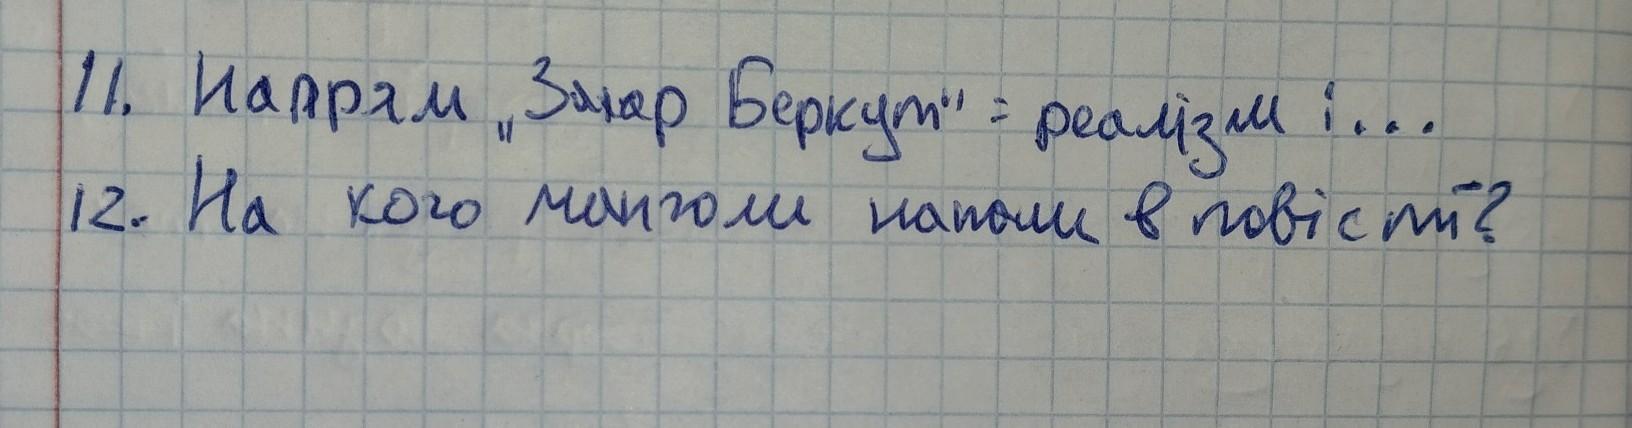 11. Напрям „Захар Беркут" = реалізм і...
12. На кого монголи напали в повісті?